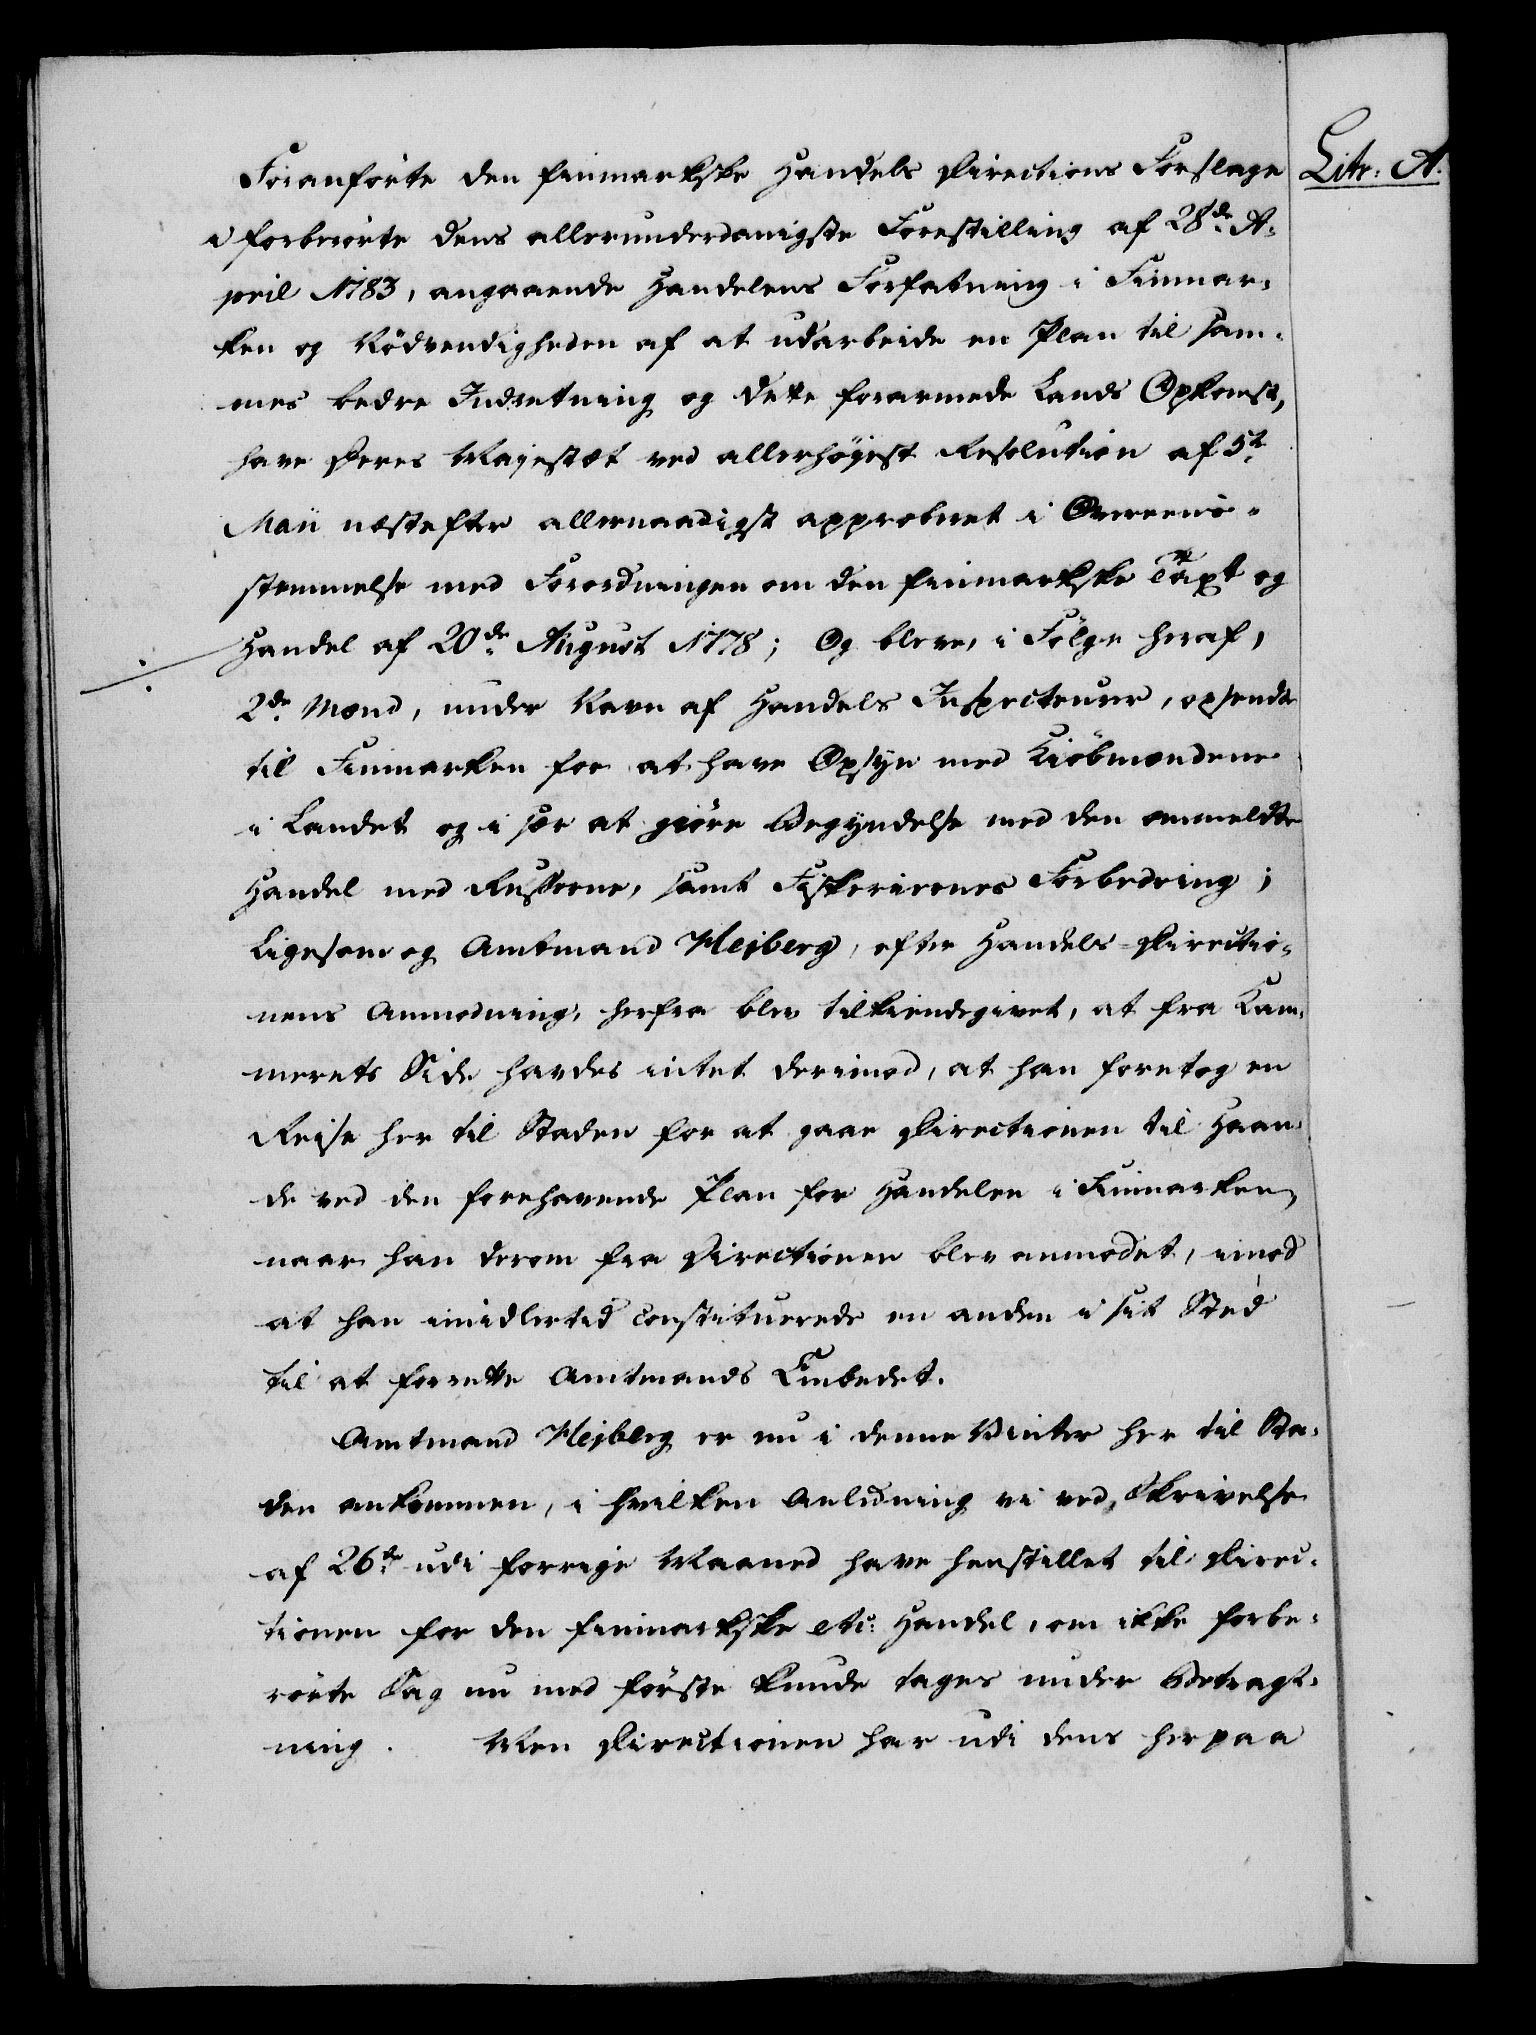 Litr. A.
Foranførte den finmarkske Handels Directions Forslage
i forberørte dens allerunderdanigste Forestilling af 28de A-
pril 1783, angaaende Handelens Forfatning i Finmar-
ken og Nødvendigheden af at udarbeide en Plan til sam-
mes bedre Indretning og dette forarmede Lands Opkomst,
have Deres Majestæt ved allerhøyest Resolution af 5te
Maii næstefter allernaadigst approberet i Overeens-
stemmelse med Forordningen om den finmarkske Taxt og
Handel af 20de August 1778; Og bleve, i Følge heraf,
2de Mænd, under Navn af Handels Inspecteurer, opsendte
til Finmarken for at have Opsyn med Kiøbmændene
i Landet og i sær at giøre Begyndelse med den ommeldte
Handel med Russerne, samt Fiskeriernes Forbedring;
Ligesom og Amtmand Hejberg, efter Handels-Directio-
nens Anmodning, herfra blev tilkiendegivet, at fra Kam-
merets Side havdes intet derimod, at han foretog en
Reise her til Staden for at gaae Directionen til Haan-
de ved den forehavende Plan for Handelen i Finmarken,
naar han derom fra Directionen blev anmodet, imod
at han imidlertid constituerede en anden i sit Sted
til at forrette Amtmands Embedet.
Amtmand Hejberg er nu i denne Vinter her til Sta-
den ankommen, i hvilken Anledning vi ved Skrivelse
af 26de udi forrige Maaned have henstillet til Direc-
tionen for den finmarkske etc: Handel, om ikke forbe-
rørte Sag nu med første kunde tages under Betragt-
ning. Men Directionen har udi dens herpaa